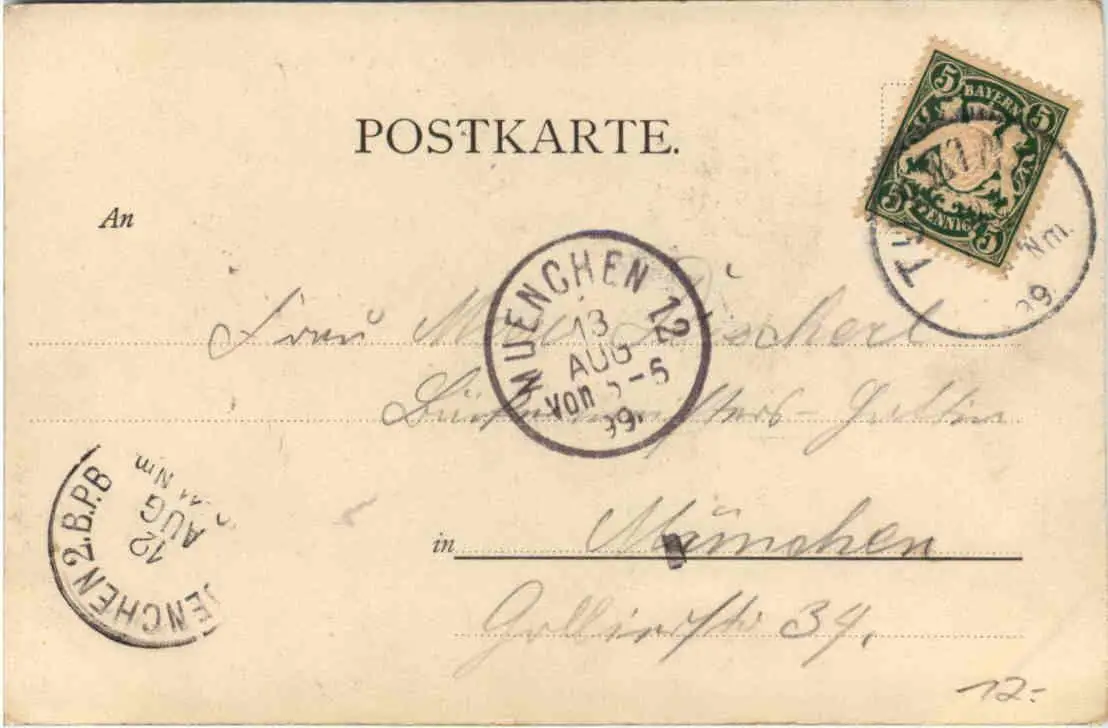 POSTKARTE.
5 BAYERN 5
5 PFENNIG 5
Nm.
99.
An
MUENCHEN 12
13
AUG
Von 5-6
99.
Frau
Gattin
MUENCHEN 2.B.P.B
12
AUG
11 Nm.
in München
Gollierstr 34.
12.-